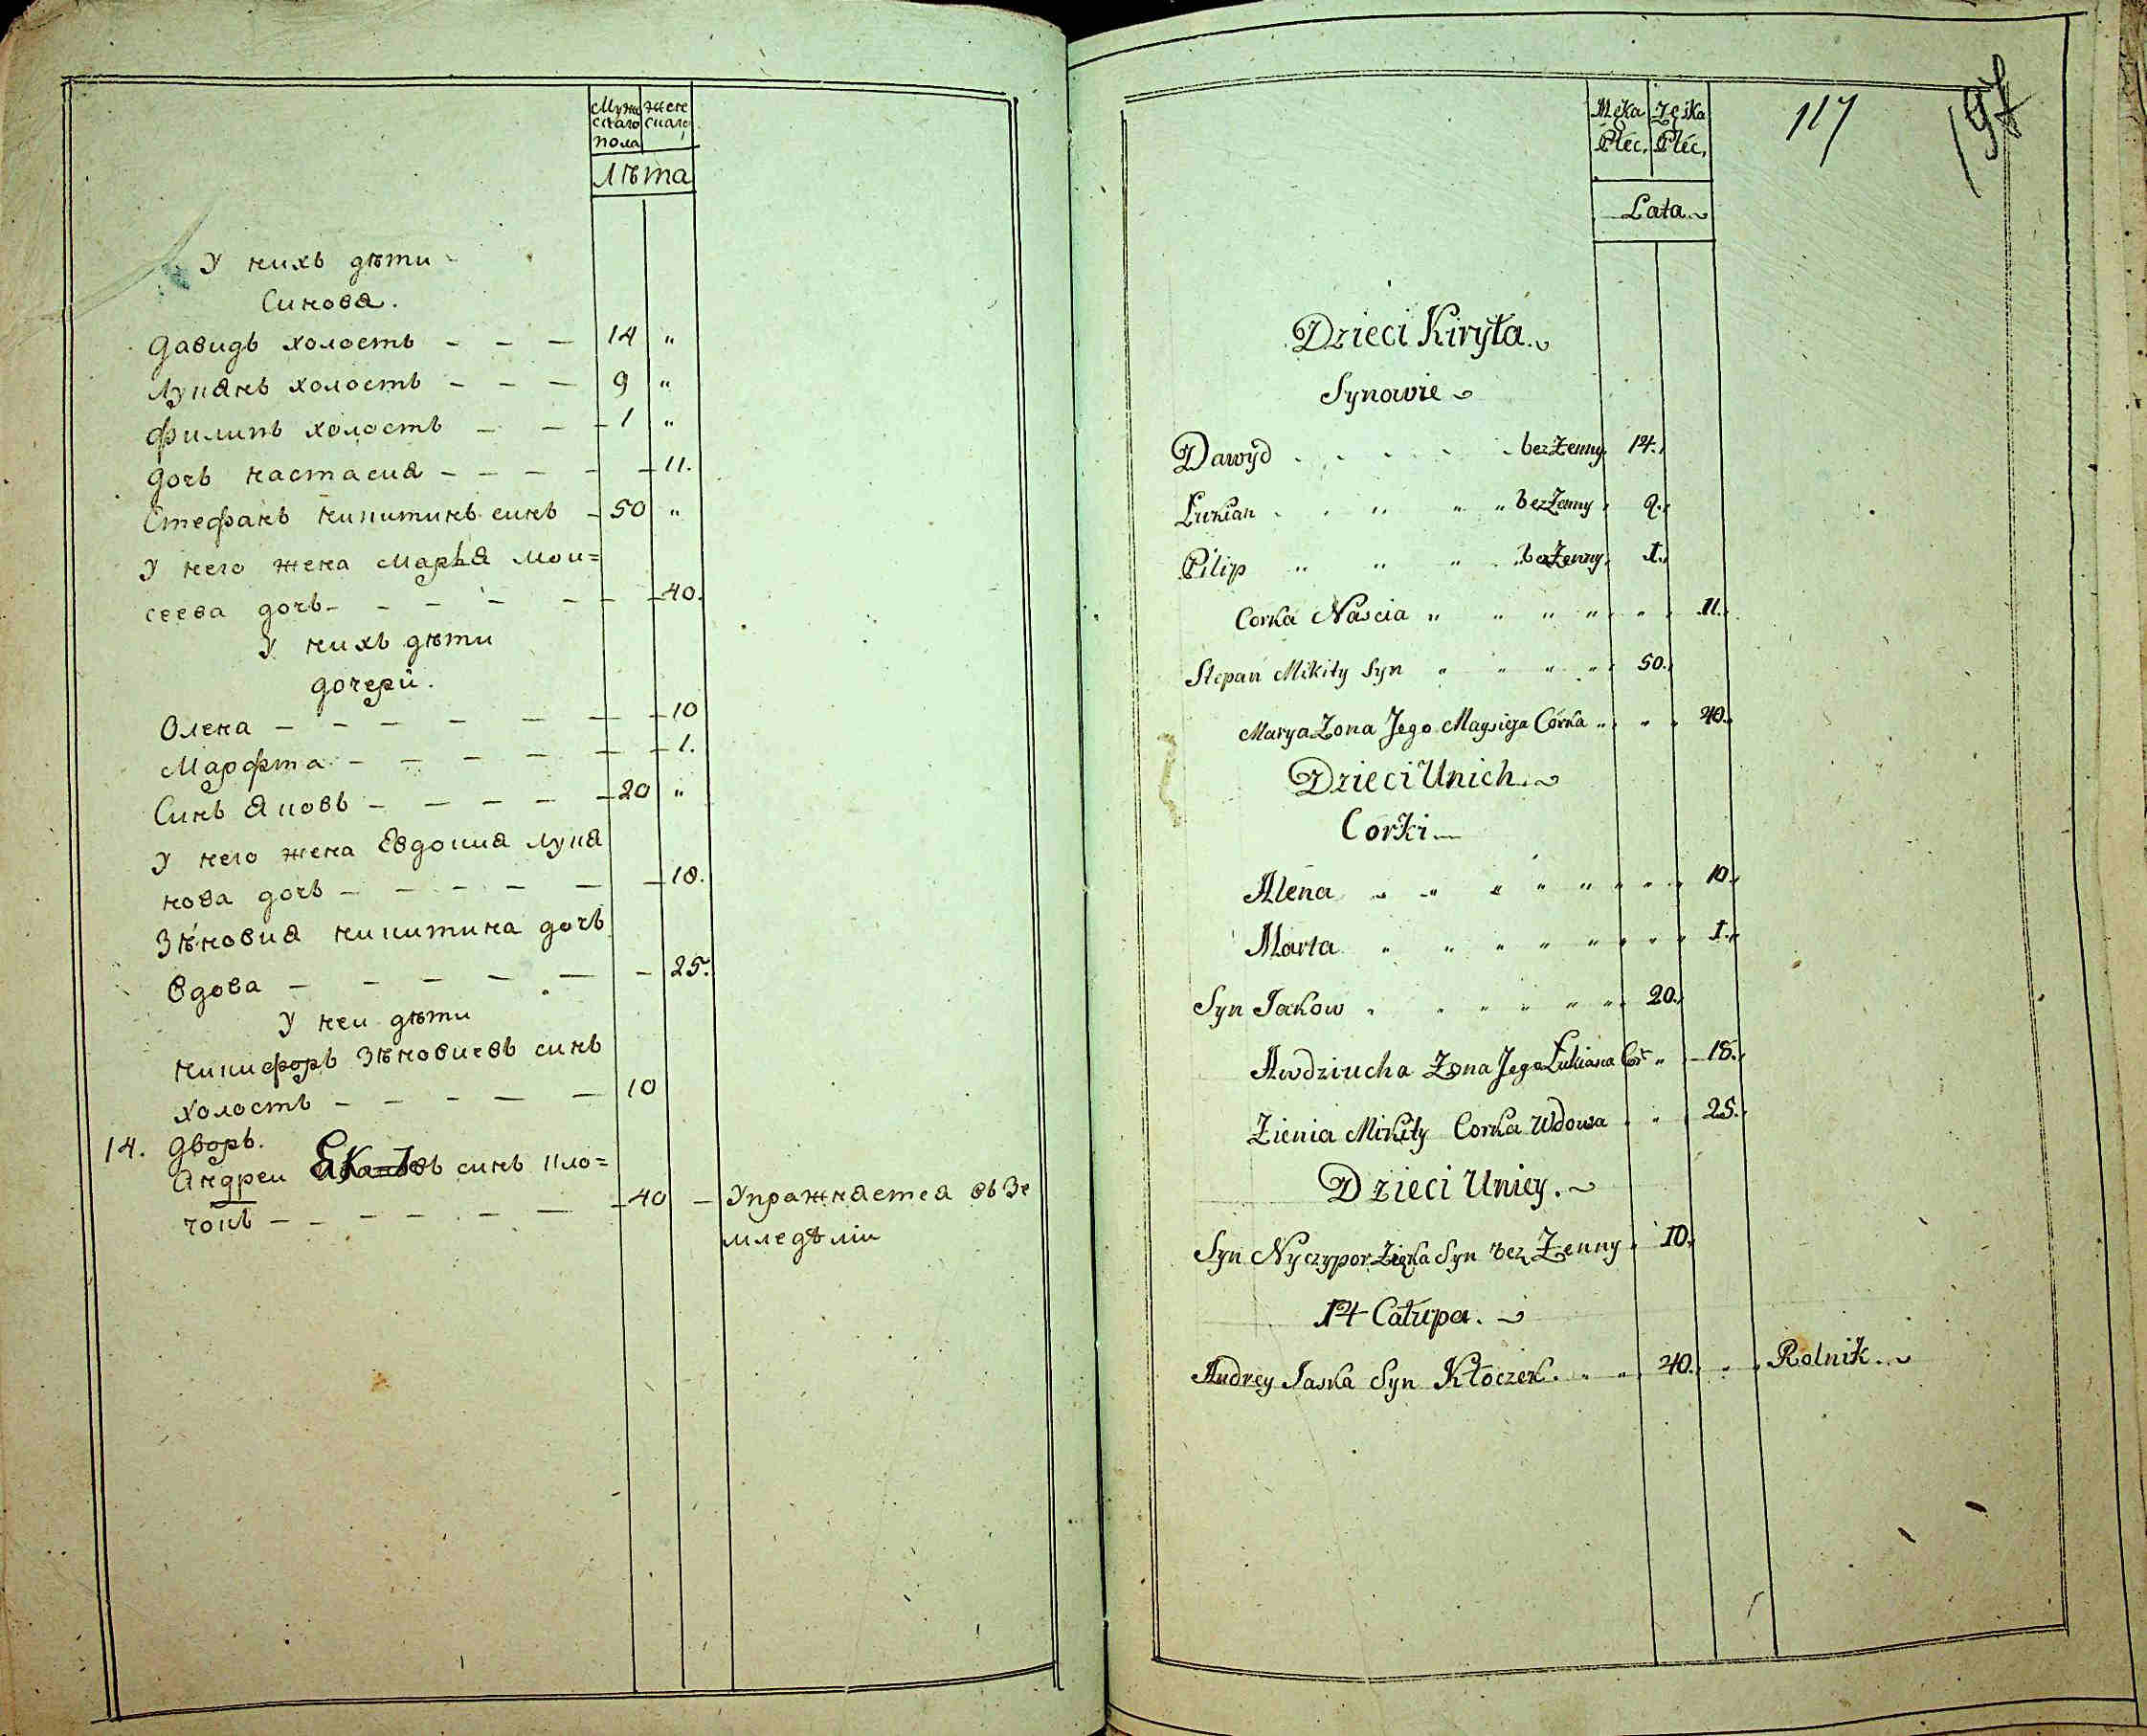 Муже жене
скаго скаго
пола
Лѣта
У нихъ дѣти
Синова.
Давидъ холостъ - - - 14 "
Лукянъ холостъ - - - 9 "
Филипъ холостъ - - - 1 "
дочь настасия - - - - - 11.
Стефанъ никитинъ синъ - 50 "
У него жена Марья мои=
сеева дочь - - - - - - 40.
У нихъ дѣти
дочери.
Олена - - - - - - - 10
Марфта - - - - - - - 1.
Синъ яковъ - - - - - 20 "
У него жена Евдокия лукя
нова дочь - - - - - - 18.
Зѣновия никитина дочь
вдова - - - - - - 25.
У неи дѣти
никифоръ Зѣновиевъ синъ
холостъ - - - - - 10
14. дворъ.
Андреи синъ кло=
чокъ - - - - - - - 40 - Упражняется въ Зе
мледѣлiи
Męka Zęska
Płec. Płec.
117
197
Lata
Dzieci Kiryła.
Synowie
Dawyd . . . . . bez Zenny 14.
Łukian . . " " " bez Zenny 9.
Pilip " " " " bez Zenny 1.
Corka Nascia " " " " " " 11.
Stepan Mikity Syn " " " " 50.
Marya Zona Jego Maysieja Corka " " " 40.
Dzieci Unich.
Corki
Alena " " " " " " " " 10.
Marta " " " " " " " " 1.
Syn Jakow " " " " " " 20.
Awdziucha Zona Jego Łukiana Cor " 18.
Zienia Mikity Corka Wdowa " " 25.
Dzieci Uniey.
Syn Nyczypor Zieńka Syn bez Zenny " 10.
14 Całupa.
Andrey Jaska Syn Kłoczek. " " 40. " " Rolnik.